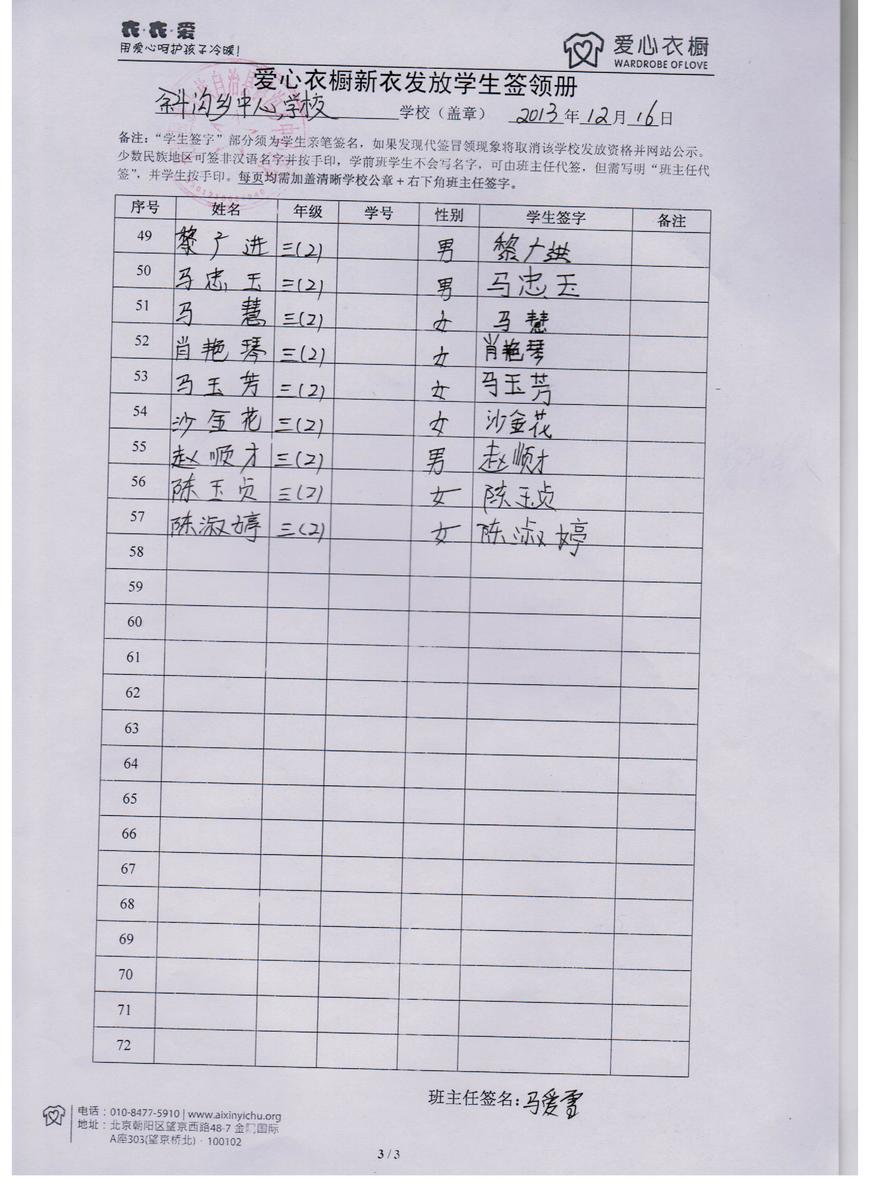 衣·衣·爱
用爱心呵护孩子冷暖!
爱心衣橱
WARDROBE OF LOVE
爱心衣橱新衣发放学生签领册
斜沟乡中心学校 学校（盖章） 2013 年 12 月 16 日
备注：“学生签字”部分须为学生亲笔签名，如果发现代签冒领现象将取消该学校发放资格并网站公示。
少数民族地区可签非汉语名字并按手印，学前班学生不会写名字，可由班主任代签，但需写明“班主任代
签”，并学生按手印。每页均需加盖清晰学校公章+右下角班主任签字。
序号 姓名 年级 学号 性别 学生签字 备注
49 黎广进 三(2) 男 黎广进
50 马忠玉 三(2) 男 马忠玉
51 马慧 三(2) 女 马慧
52 肖艳琴 三(2) 女 肖艳琴
53 马玉芳 三(2) 女 马玉芳
54 沙金花 三(2) 女 沙金花
55 赵顺才 三(2) 男 赵顺才
56 陈玉贞 三(2) 女 陈玉贞
57 陈淑婷 三(2) 女 陈淑婷
58
59
60
61
62
63
64
65
66
67
68
69
70
71
72
班主任签名：马爱雪
电话：010-8477-5910 | www.aixinyichu.org
地址：北京朝阳区望京西路48-7 金隅国际
A座303(望京桥北)·100102
3 / 3